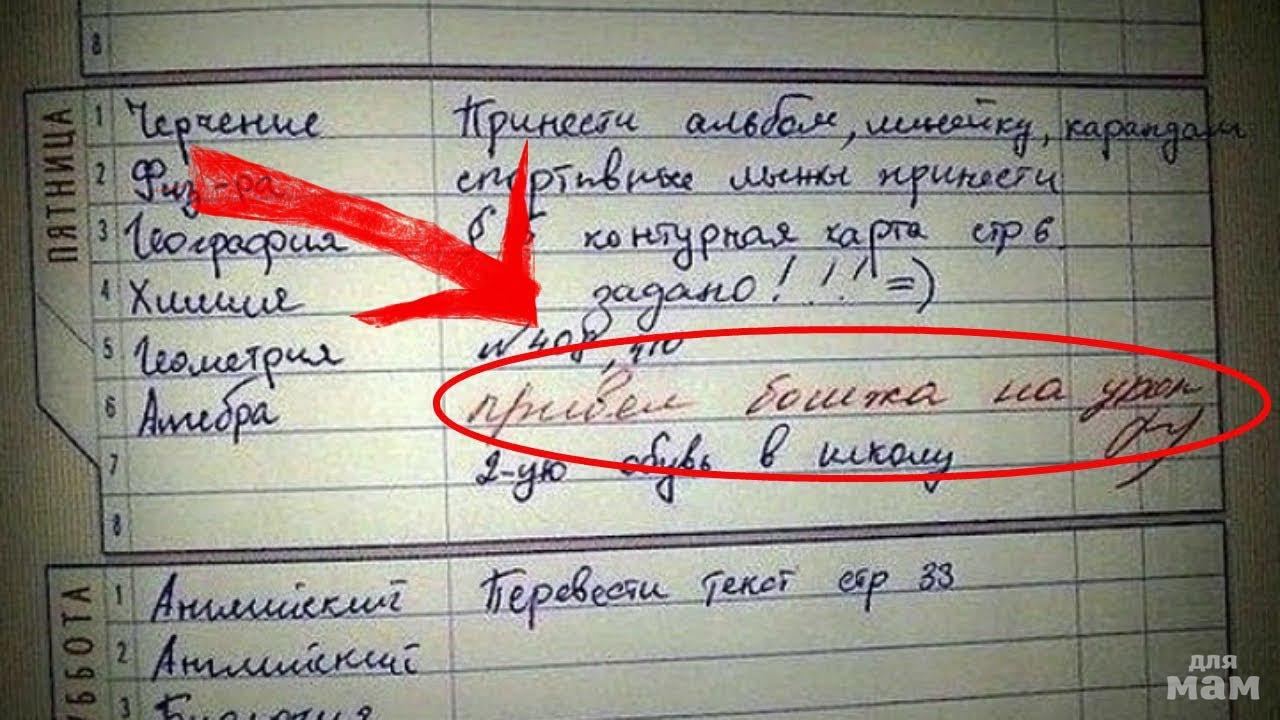 8
ПЯТНИЦА
1 Черчение Принести альбом, линейку, карандаш
2 Физ-ра спортивные лыжы принести
3 География контурная карта стр 6
4 Химия задано!!! =)
5 Геометрия №408, 410
6 Алгебра привел бомжа на урок
7 2-ую обувь в школу
8
СУББОТА
1 Английский Перевести текст стр 33
2 Английский
3 Биология
для
мам